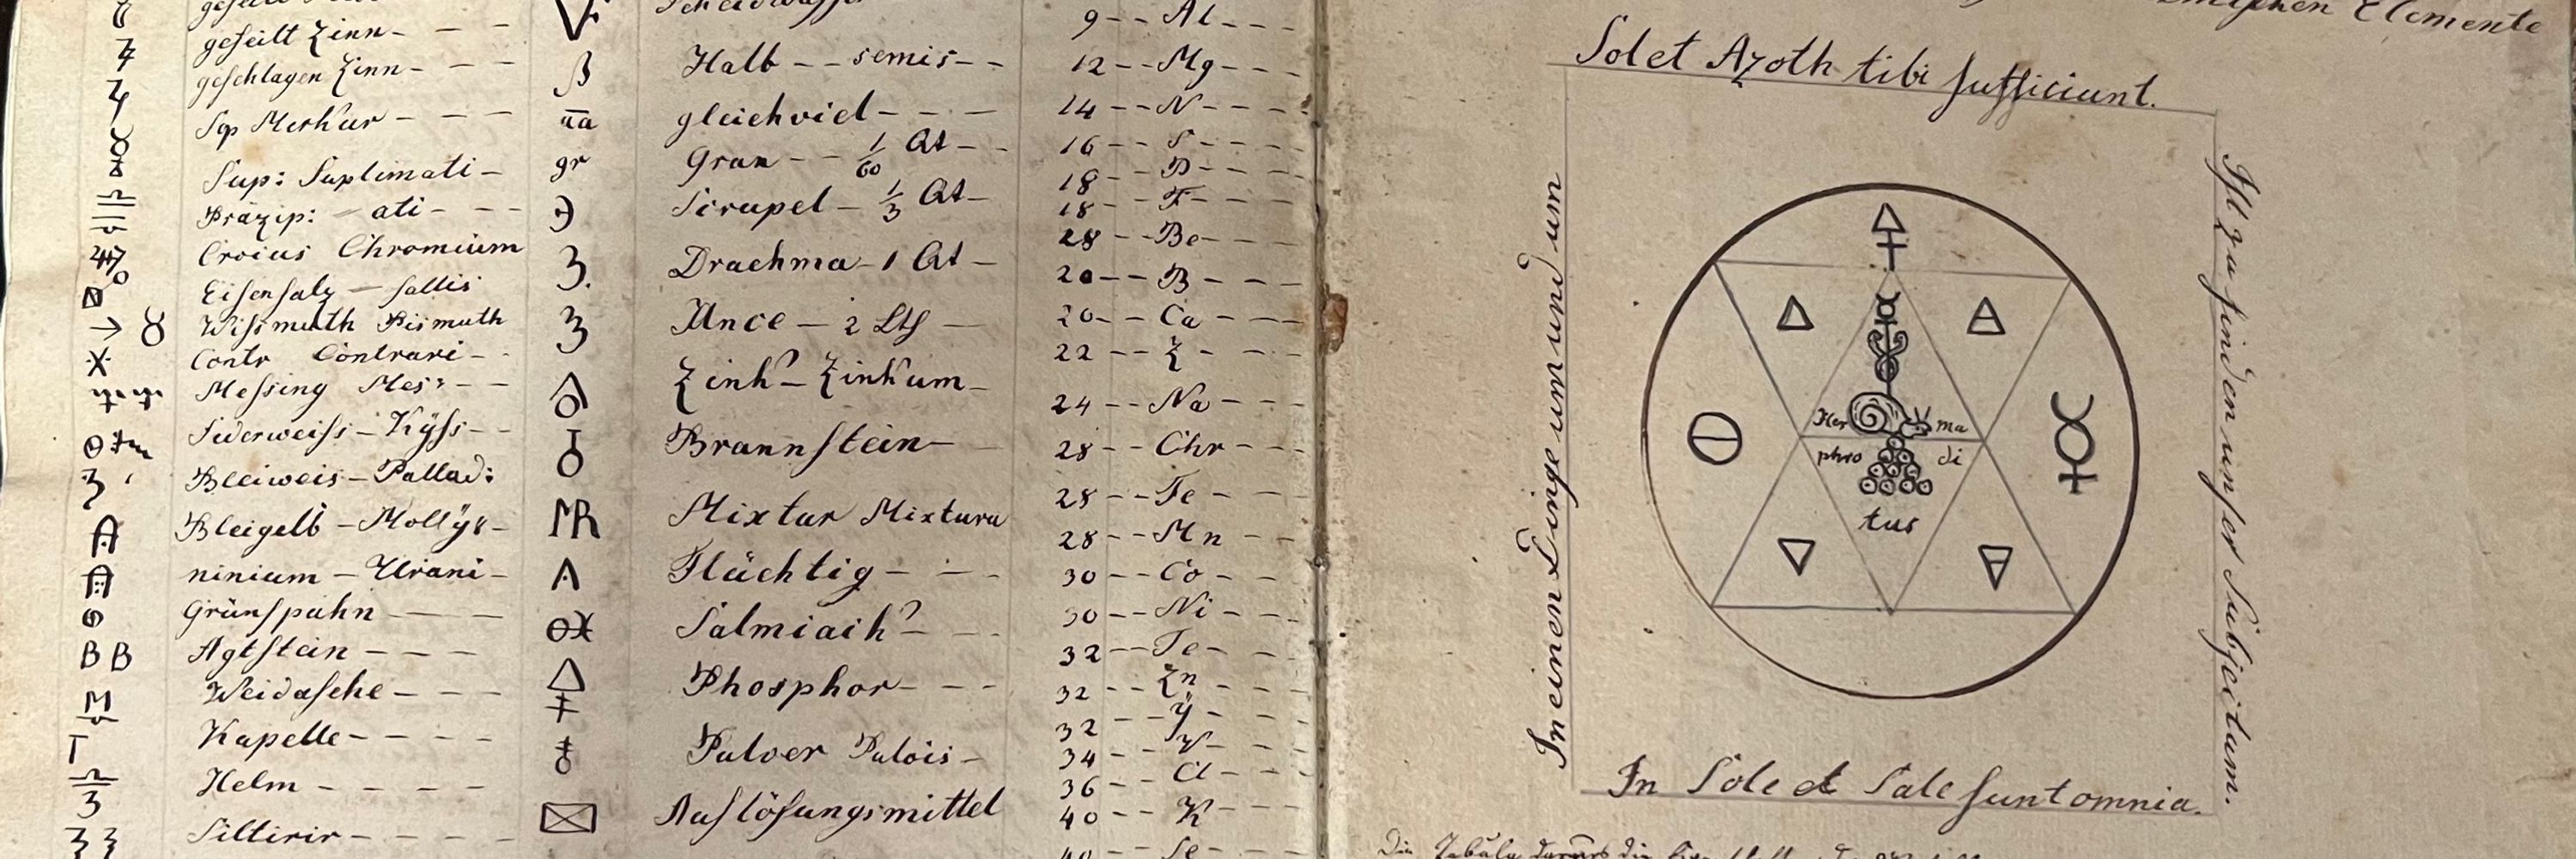 gefeilt Zinn - - -
geschlagen Zinn - - -
Sqp Merkur - - -
Sup: Suplimati -
Präzip: - ati - - -
Crocus Chromium
Eisensalz - saltis
Wissmuth Bismuth
Contr Contrari - -
Messing Mes: - -
Siderweiss - Kÿss - -
Bleiweis - Pallad:
Bleigelb - Mollÿs -
ninium - Urani -
Grünspahn - - -
Agtstein - - - -
Weidasche - - - -
Kapelle - - - -
Helm - - - -
Siltirir - - - -
Scheidwasser
Halb - - semis - -
aa gleichviel - - - -
gr Gran - - 1/60 Qt - -
Scrupel - 1/3 Qt -
Drachma - 1 Qt -
Unce - 2 Lth -
Zink - Zinkum -
Braunstein -
MR Mixtur Mixtura
Flüchtig - - -
Salmiack - - -
Phosphor - - -
Pulver Pulvis -
Auflösungsmittel
9 - - Al - - -
12 - - Mg - - -
14 - - N - - -
16 - - S - - -
18 - - P - - -
18 - - F - - -
28 - - Be - - -
20 - - B - - -
20 - - Ca - - -
22 - - Z - - -
24 - - Na - - -
28 - - Chr - - -
28 - - Fe - - -
28 - - Mn - - -
30 - - Co - - -
30 - - Ni - - -
32 - - Te - - -
32 - - Zn - - -
32 - - Ÿ - - -
34 - - V - - -
36 - - Cl - - -
40 - - K - - -
40 - - Se - - -
Elemente
Sol et Azoth tibi sufficiunt.
In einen Dinge um und um
Ist zu finden unser Subjectum.
Her ma
phro di
tus
In Sole et Sale sunt omnia.